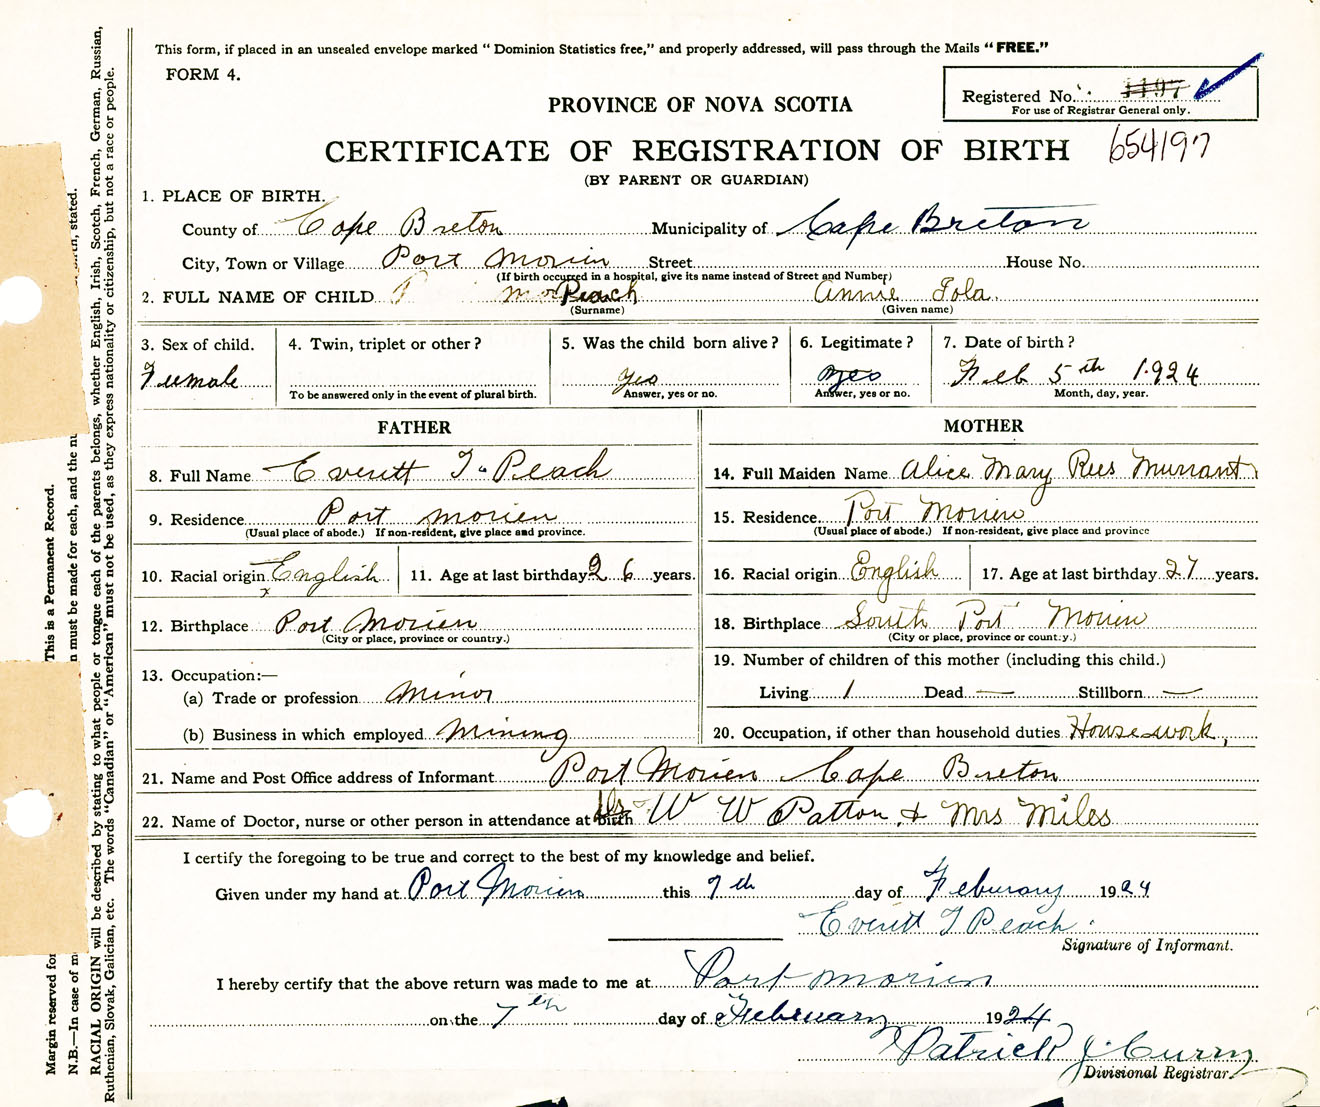 This form, if placed in an unsealed envelope marked "Dominion Statistics free," and properly addressed, will pass through the Mails "FREE."
FORM 4.
Registered No. 1197
For use of Registrar General only.
PROVINCE OF NOVA SCOTIA
CERTIFICATE OF REGISTRATION OF BIRTH 654197
(BY PARENT OR GUARDIAN)
1. PLACE OF BIRTH.
County of Cape Breton Municipality of Cape Breton
City, Town or Village Port Morien Street House No.
(If birth occurred in a hospital, give its name instead of Street and Number)
2. FULL NAME OF CHILD Peach Annie Iola.
(Surname) (Given name)
3. Sex of child. 4. Twin, triplet or other? 5. Was the child born alive? 6. Legitimate? 7. Date of birth?
Feemale yes yes Feb 5th 1924
To be answered only in the event of plural birth. Answer, yes or no. Answer, yes or no. Month, day, year.
FATHER
8. Full Name Everett T. Peach
9. Residence Port Morien
(Usual place of abode.) If non-resident, give place and province.
10. Racial origin English 11. Age at last birthday 26 years.
x
12. Birthplace Port Morien
(City or place, province or country.)
13. Occupation:—
(a) Trade or profession Minor
(b) Business in which employed Mining
MOTHER
14. Full Maiden Name Alice Mary Rees Murrant
15. Residence Port Morien
(Usual place of abode.) If non-resident, give place and province
16. Racial origin English 17. Age at last birthday 27 years.
18. Birthplace South Port Morien
(City or place, province or country.)
19. Number of children of this mother (including this child.)
Living 1 Dead — Stillborn —
20. Occupation, if other than household duties Housework,
21. Name and Post Office address of Informant Port Morien Cape Breton
22. Name of Doctor, nurse or other person in attendance at birth Dr W W Patton & Mrs Miles
I certify the foregoing to be true and correct to the best of my knowledge and belief.
Given under my hand at Port Morien this 7th day of Feburary 1924
Everett T Peach
Signature of Informant.
I hereby certify that the above return was made to me at Port Morien
on the 7th day of February 1924
Patrick J. Curry
Divisional Registrar.
Margin reserved for
This is a Permanent Record.
N.B.—In case of m
n must be made for each, and the nu
birth, stated.
RACIAL ORIGIN will be described by stating to what people or tongue each of the parents belongs, whether English, Irish, Scotch, French, German, Russian,
Ruthenian, Slovak, Galician, etc. The words "Canadian" or "American" must not be used, as they express nationality or citizenship, but not a race or people.